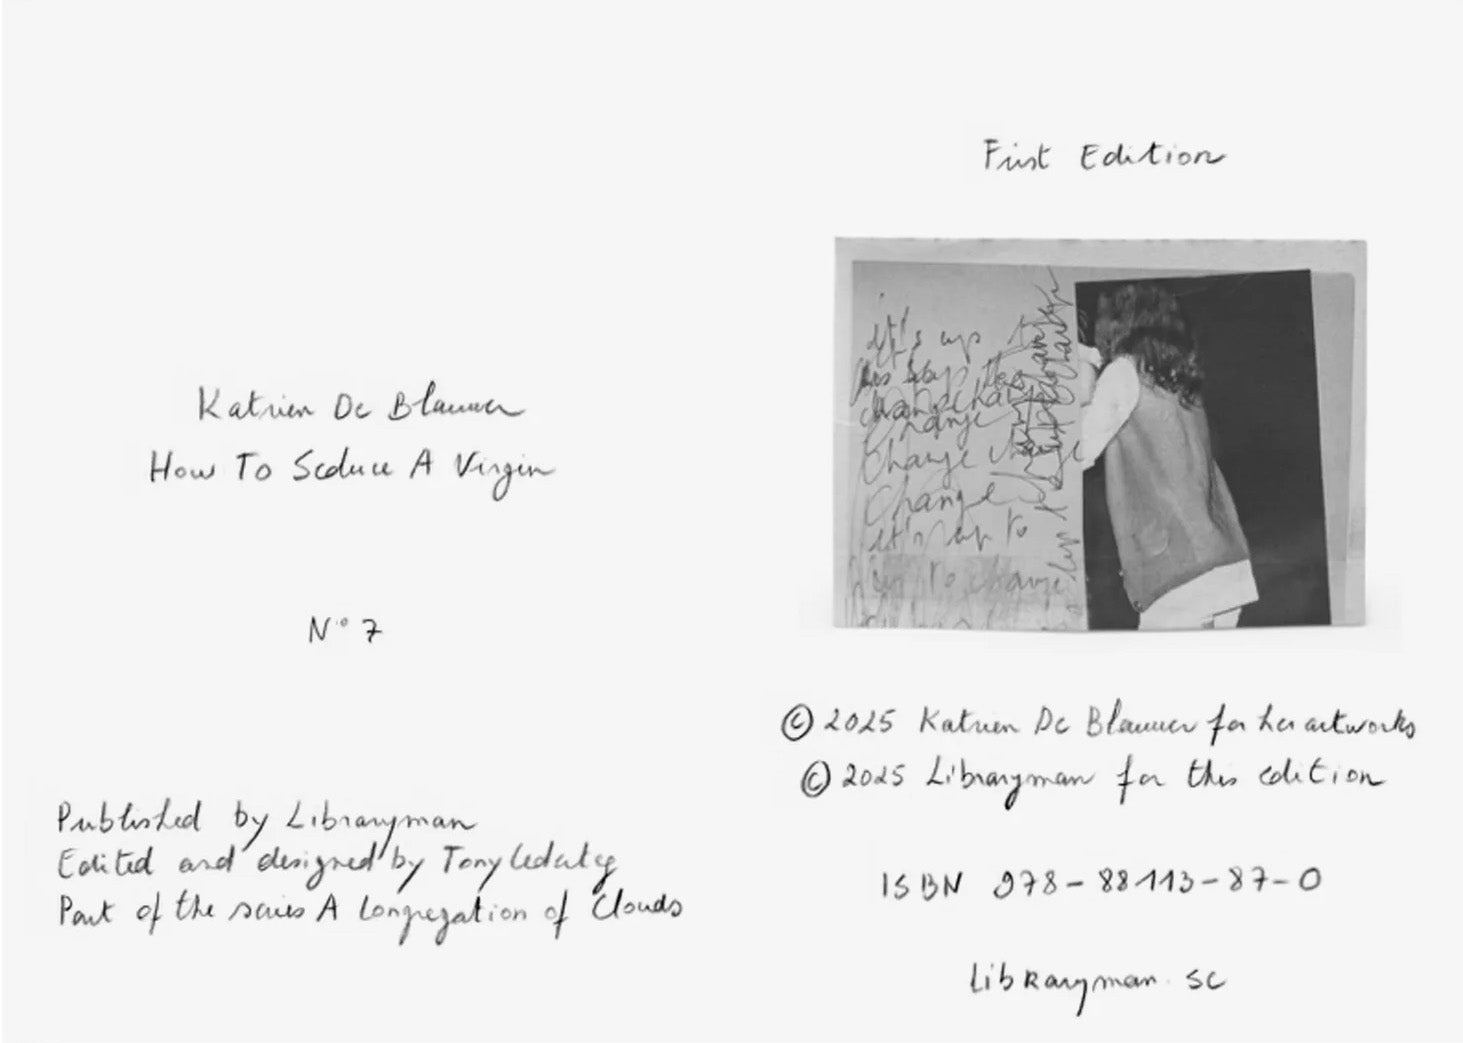 Katrien De Blauwer
How To Seduce A Virgin
N° 7
Published by Libraryman
Edited and designed by Tony Cederteg
Part of the series A Congregation of Clouds
First Edition
it's up t
change
change change
change
it's up to
to change
© 2025 Katrien De Blauwer for her artworks
© 2025 Libraryman for this edition
ISBN 978-88113-87-0
Libraryman.se